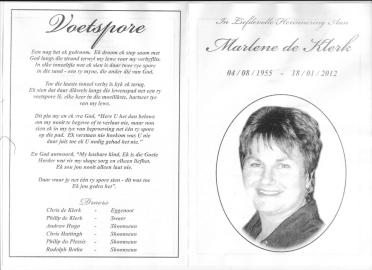 Voetspore
Een nag het ek gedroom. Ek droom ek stap saam met
God langs die strand terwyl my lewe voor my verbyflits.
In elke toneeltjie wat ek sien is daar twee rye spore
in die sand - een ry myne, die ander dié van God.
Toe die laaste toneel verby is kyk ek terug.
Ek sien dat daar dikwels langs die lewenspad net een ry
voetspore lê, elke keer in die moeilikste, hartseer tye
van my lewe.
Dit pla my en ek vra God, "Here U het dan belowe
om my nooit te begewe of te verlaat nie, maar nou
sien ek in my tye van beproewing net één ry spore
op die pad. Ek verstaan nie hoekom was U nie
daar juis toe ek U nodig gehad het nie."
En God antwoord. "My kosbare kind, Ek is die Goeie
Herder wat vir my skape sorg en elkeen liefhet.
Ek sou jou nooit alleen laat nie.
Daar waar jy net één ry spore sien - dit was toe
Ek jou gedra het".
Draers
Chris de Klerk - Eggenoot
Philip de Klerk - Swaer
Andrew Hugo - Skoonseun
Chris Hattingh - Skoonseun
Philip du Plessis - Skoonseun
Rudolph Botha - Skoonseun
In Liefdevolle Herinnering Aan
Marlene de Klerk
04 / 08 / 1955 - 18 / 01 / 2012